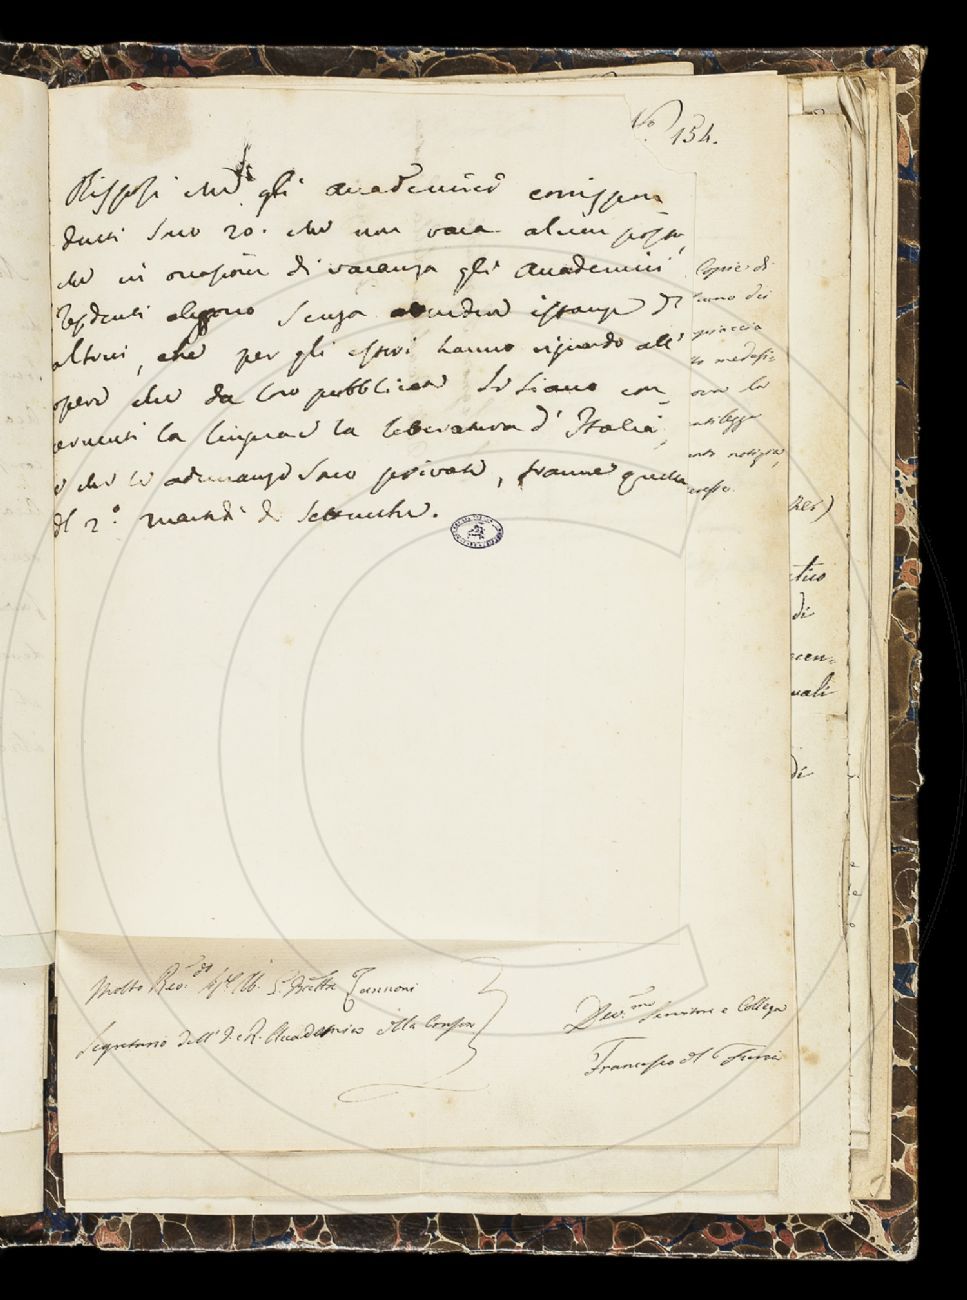 N.o 154.
Risposi che gli accademici corrispon
denti sono 20. che non vaca alcun posto,
che in occasione di vacanza gli Accademici
residenti eleggono senza attendere istanza di
altrui, che per gli esteri hanno riguardo all'
opere che da loro pubblicate si siano con
cernenti la lingua e la letteratura d'Italia,
e che le adunanze sono private, tranne quella
del 2.o martedì di Settembre.
Copie di
uno dei
medesi
notizie,
ber)
di
uali
di
Molto Rev.do Sig.
Segretario dell' I. e R. Accademia della Crusca
Dev.mo Servitore e Collega
Francesco del Furia